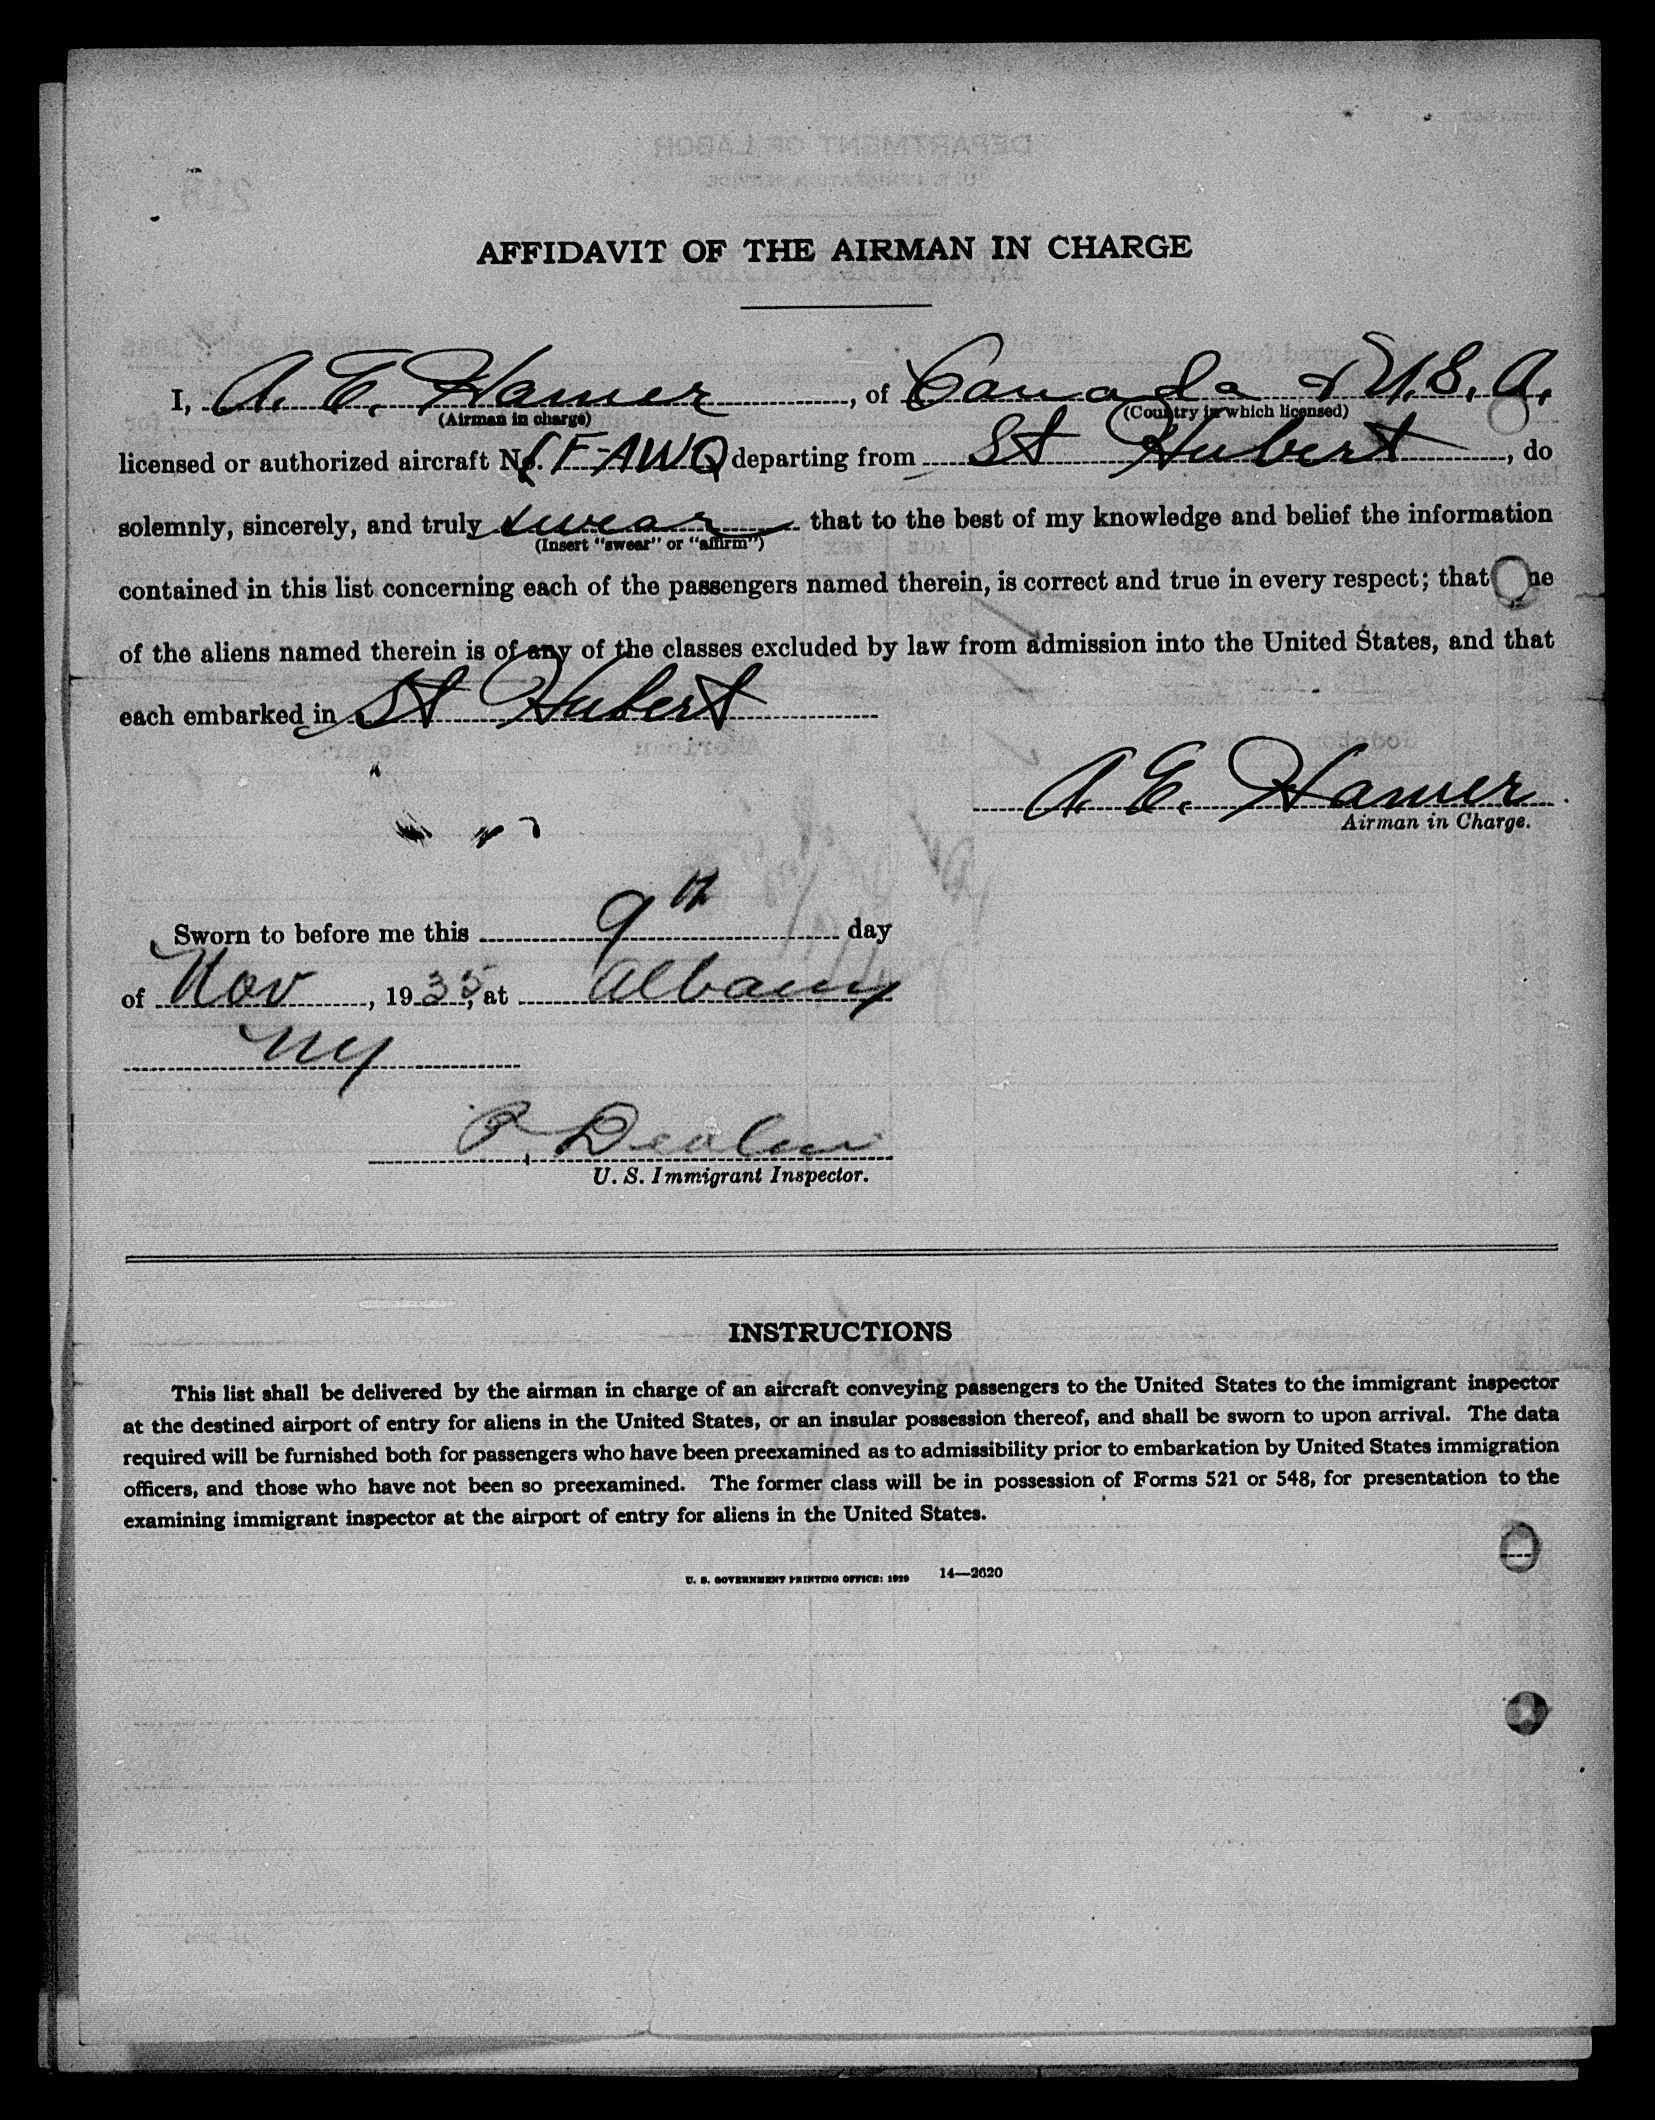 AFFIDAVIT OF THE AIRMAN IN CHARGE
I, A. E. Hamer, of Canada & U.S.A.
(Airman in charge) (Country in which licensed)
licensed or authorized aircraft No. CF-AWQ departing from St Hubert, do
solemnly, sincerely, and truly swear that to the best of my knowledge and belief the information
(Insert "swear" or "affirm")
contained in this list concerning each of the passengers named therein, is correct and true in every respect; that ne
of the aliens named therein is of any of the classes excluded by law from admission into the United States, and that
each embarked in St Hubert
A. E. Hamer
Airman in Charge.
Sworn to before me this 9th day
of Nov, 1935, at Albany
NY
U. S. Immigrant Inspector.
INSTRUCTIONS
This list shall be delivered by the airman in charge of an aircraft conveying passengers to the United States to the immigrant inspector
at the destined airport of entry for aliens in the United States, or an insular possession thereof, and shall be sworn to upon arrival. The data
required will be furnished both for passengers who have been preexamined as to admissibility prior to embarkation by United States immigration
officers, and those who have not been so preexamined. The former class will be in possession of Forms 521 or 548, for presentation to the
examining immigrant inspector at the airport of entry for aliens in the United States.
U. S. GOVERNMENT PRINTING OFFICE: 1929 14—2620